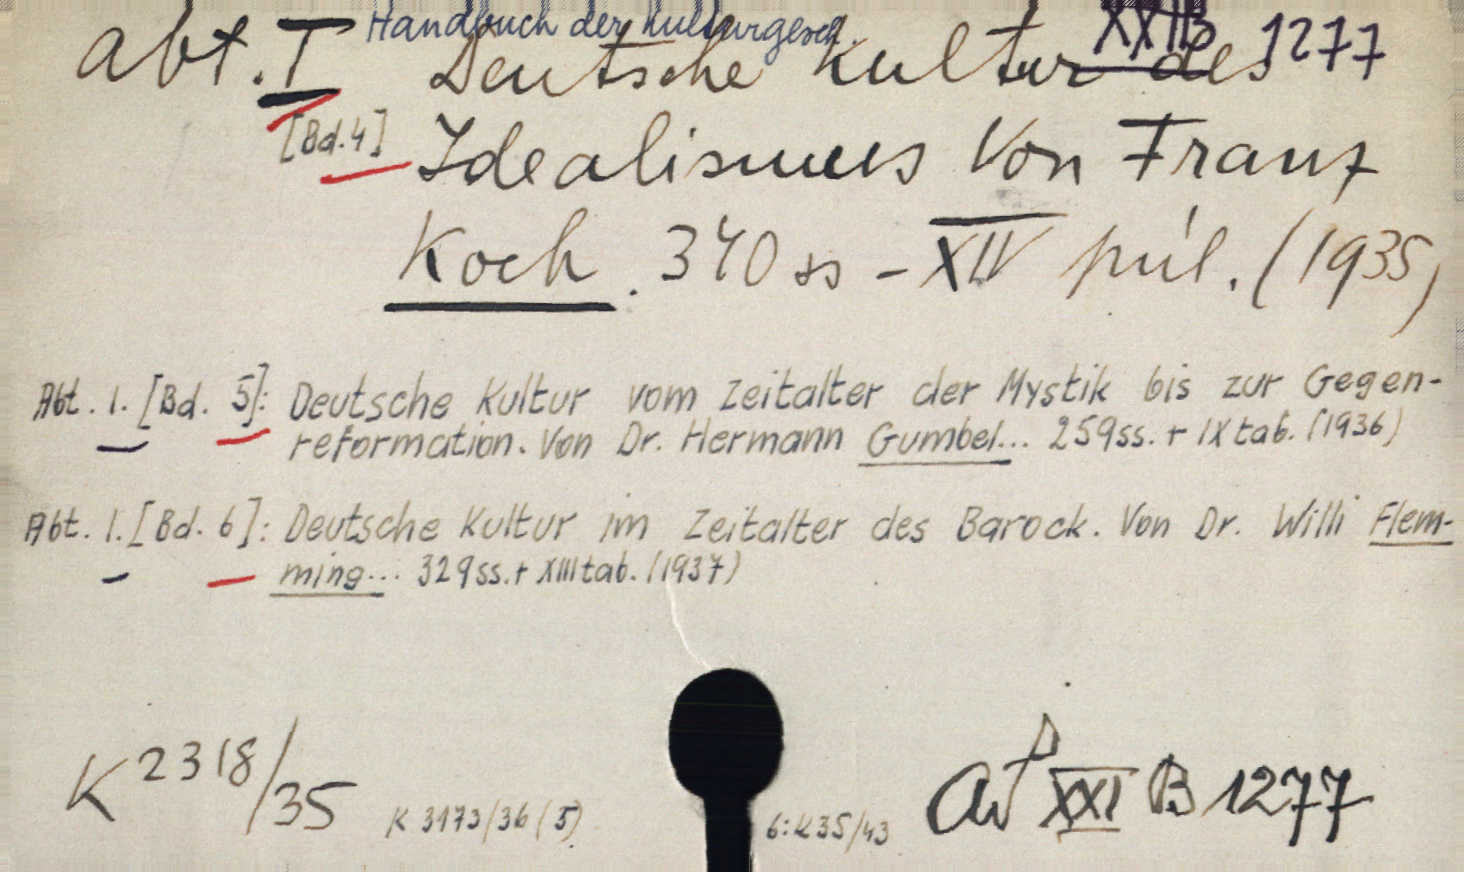 Handbuch der Kulturgesch. XXI B 1277
Abt. I Deutsche Kultur des
[Bd. 4] Idealismus Von Franz
Koch. 340 ss - XIV příl. (1935)
Abt. 1. [Bd. 5]: Deutsche Kultur vom Zeitalter der Mystik bis zur Gegen-
reformation. Von Dr. Hermann Gumbel... 259ss. + IX tab. (1936)
Abt. 1. [Bd. 6]: Deutsche Kultur im Zeitalter des Barock. Von Dr. Willi Flem-
ming... 329ss. + XIII tab. (1937)
K 2318/35
K 3173/36 (5)
6: K 35/43
XXI B 1277